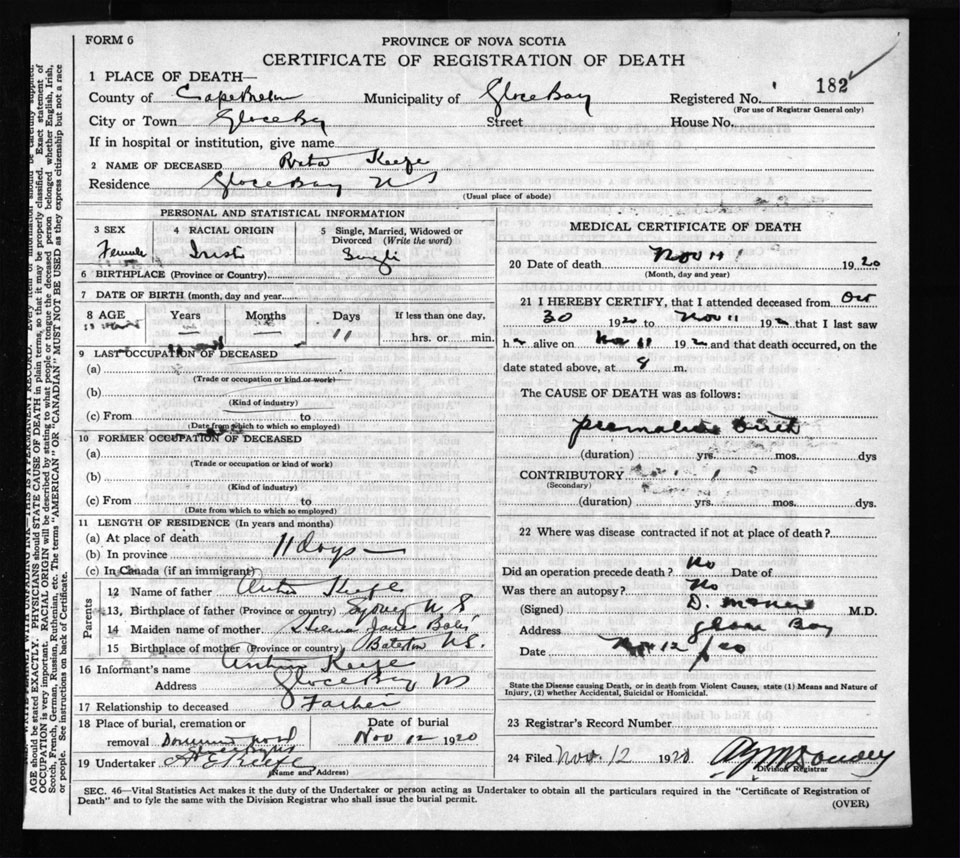 FORM 6
PROVINCE OF NOVA SCOTIA
CERTIFICATE OF REGISTRATION OF DEATH
1 PLACE OF DEATH—
County of Cape Breton Municipality of Glace Bay Registered No. 182
(For use of Registrar General only)
City or Town Glace Bay Street House No.
If in hospital or institution, give name
2 NAME OF DECEASED Rita Keefe
Residence Glace Bay N S
(Usual place of abode)
PERSONAL AND STATISTICAL INFORMATION
3 SEX 4 RACIAL ORIGIN 5 Single, Married, Widowed or Divorced (Write the word)
Female Irish Single
6 BIRTHPLACE (Province or Country)
7 DATE OF BIRTH (month, day and year)
8 AGE Years Months Days If less than one day,
— — 11 hrs. or min.
9 LAST OCCUPATION OF DECEASED
(a)
(Trade or occupation or kind or work)
(b)
(Kind of industry)
(c) From to
(Date from which to which so employed)
10 FORMER OCCUPATION OF DECEASED
(a)
(Trade or occupation or kind of work)
(b)
(Kind of industry)
(c) From to
(Date from which to which so employed)
11 LENGTH OF RESIDENCE (In years and months)
(a) At place of death
(b) In province 11 days —
(c) In Canada (if an immigrant)
Parents
12 Name of father Arthur Keefe
13, Birthplace of father (Province or country) Sydney N S
14 Maiden name of mother Jane
15 Birthplace of mother (Province or country) N.S.
16 Informant's name Arthur Keefe
Address Glace Bay NS
17 Relationship to deceased Father
18 Place of burial, cremation or Date of burial
removal Nov 12 1920
19 Undertaker Keefe
(Name and Address)
MEDICAL CERTIFICATE OF DEATH
20 Date of death Nov 11 1920
(Month, day and year)
21 I HEREBY CERTIFY, that I attended deceased from Oct
30 1920 to Nov 11 192 that I last saw
h alive on Nov 11 192 and that death occurred, on the
date stated above, at 9 m.
The CAUSE OF DEATH was as follows:
premature birth
(duration) yrs. mos. dys
CONTRIBUTORY
(Secondary)
(duration) yrs. mos. dys.
22 Where was disease contracted if not at place of death?
Did an operation precede death? No Date of
Was there an autopsy? No
(Signed) D. M.D.
Address Glace Bay
Date Nov 12 / 20
State the Disease causing Death, or in death from Violent Causes, state (1) Means and Nature of
Injury, (2) whether Accidental, Suicidal or Homicidal.
23 Registrar's Record Number
24 Filed Nov. 12 1920
Division Registrar
SEC. 46—Vital Statistics Act makes it the duty of the Undertaker or person acting as Undertaker to obtain all the particulars required in the "Certificate of Registration of
Death" and to fyle the same with the Division Registrar who shall issue the burial permit.
(OVER)
AGE should be stated EXACTLY. PHYSICIANS should STATE CAUSE OF DEATH in plain terms, so that it may be properly classified. Exact statement of
OCCUPATION is very important. RACIAL ORIGIN will be described by stating to what people or tongue the deceased person belonged whether English, Irish,
Scotch, French, German, Russian, Ruthenian, etc. The terms "AMERICAN" OR "CANADIAN" MUST NOT BE USED as they express citizenship but not a race
or people. See instructions on back of Certificate.